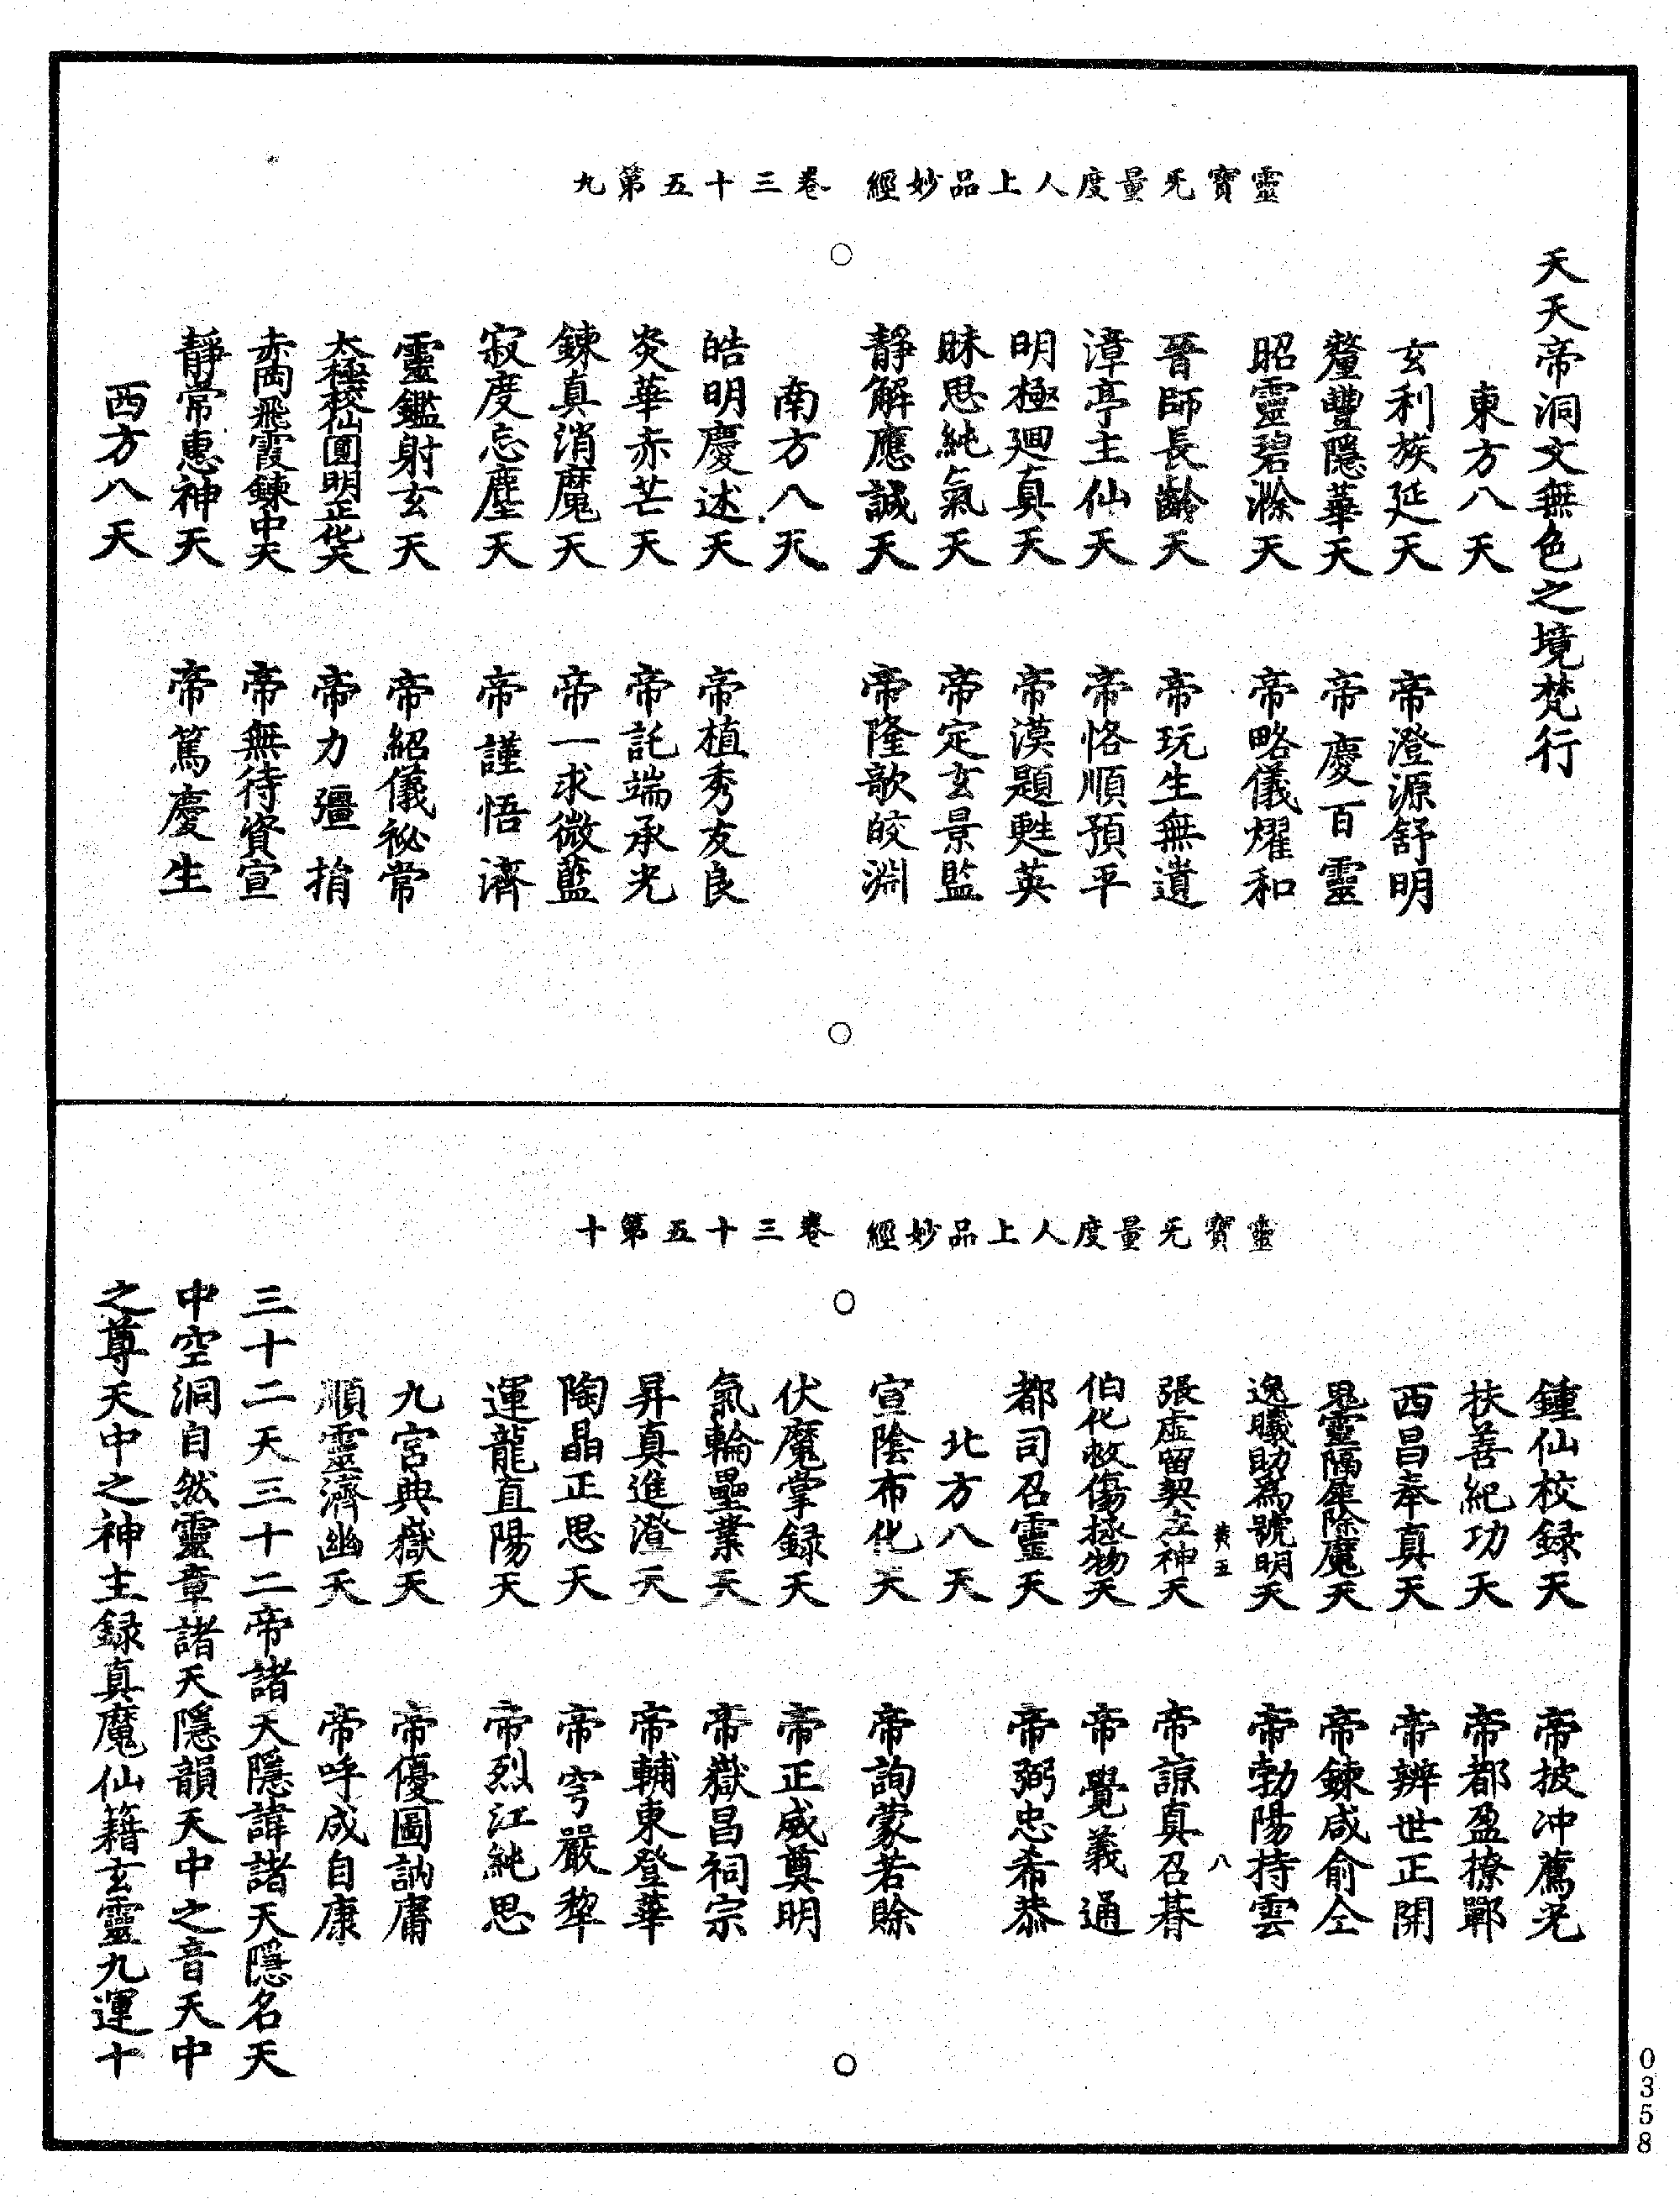 靈寳旡量度人上品妙經 卷三十五第九
天天帝洞文無色之境梵行
東方八天
玄利族延天 帝澄源舒明
釐豐隱華天 帝慶百靈
昭靈碧滁天 帝略儀燿和
晉師長齡天 帝玩生無遺
漳亭主仙天 帝恪順預平
明極廻真天 帝漠題甦英
眛思純氣天 帝定玄景監
靜解應誠天 帝隆歌皎淵
南方八天
皓明慶述天 帝植秀友良
炎華赤芒天 帝託端承光
鍊真消魔天 帝一求微藍
寂度忘塵天 帝謹悟濟
靈鑑射玄天 帝紹儀祕常
太極稜仙圓明正化天 帝力彊捎
赤岡飛霞鍊中天 帝無待資宣
靜常惠神天 帝篤慶生
西方八天
靈寳旡量度人上品妙經 卷三十五第十
鍾仙校録天 帝披冲薦光
扶善紀功天 帝都盈撩鄲
西昌奉真天 帝辨世正開
晃靈隔犀除魔天 帝鍊咸俞仝
逸曦助為號明天 帝勃陽持雲
黄五 八
張虛留契立神天 帝諒真召碁
伯化救傷拯物天 帝覺義通
都司召靈天 帝弼忠希恭
北方八天
宣陰布化天 帝詢蒙若賒
伏魔掌録天 帝正威奠明
氣輪壘業天 帝嶽昌祠宗
昇真進澄天 帝輔東登華
陶晶正思天 帝穹嚴犂
運龍直陽天 帝烈江純思
九宮典嶽天 帝優圖訥庸
順靈濟幽天 帝呼成自康
三十二天三十二帝諸天隱諱諸天隱名天
中空洞自然靈章諸天隱韻天中之音天中
之尊天中之神主録真魔仙籍玄靈九運十
0358